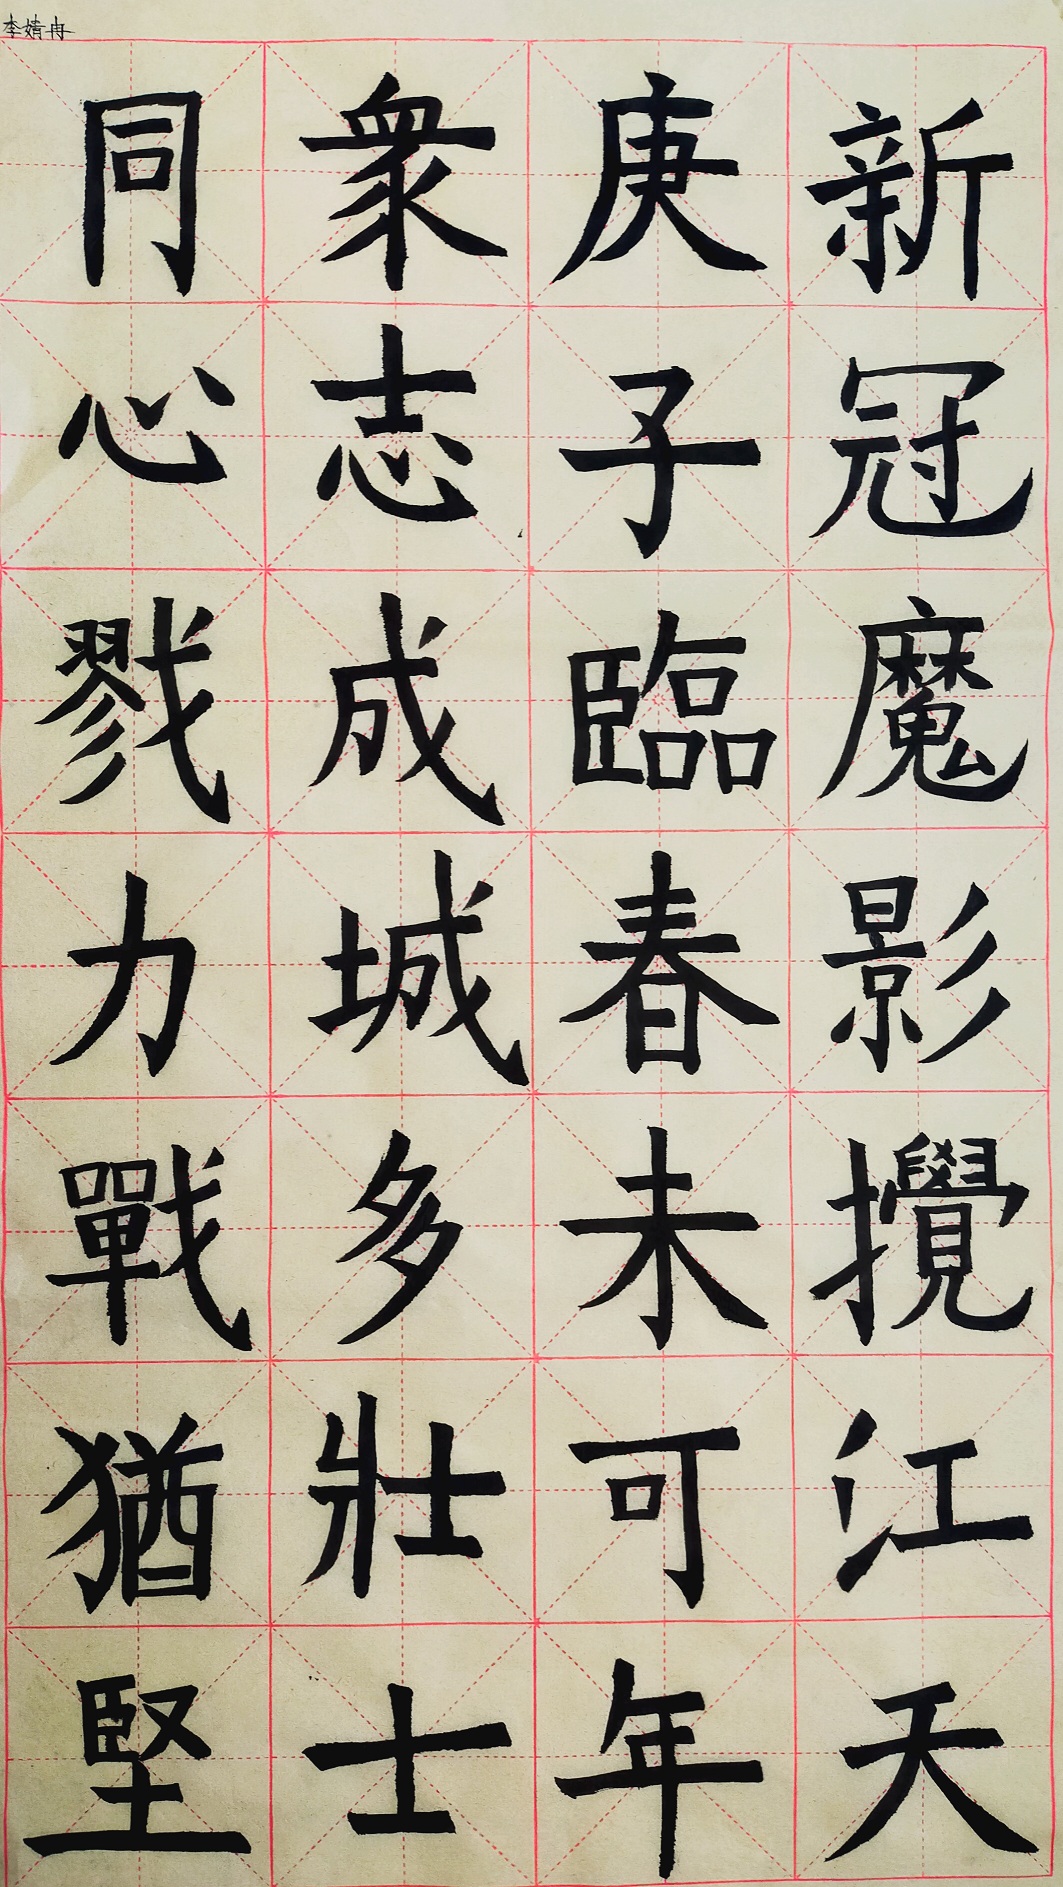 李婧冉
新冠魔影攪江天
庚子臨春未可年
衆志成城多壯士
同心戮力戰猶堅